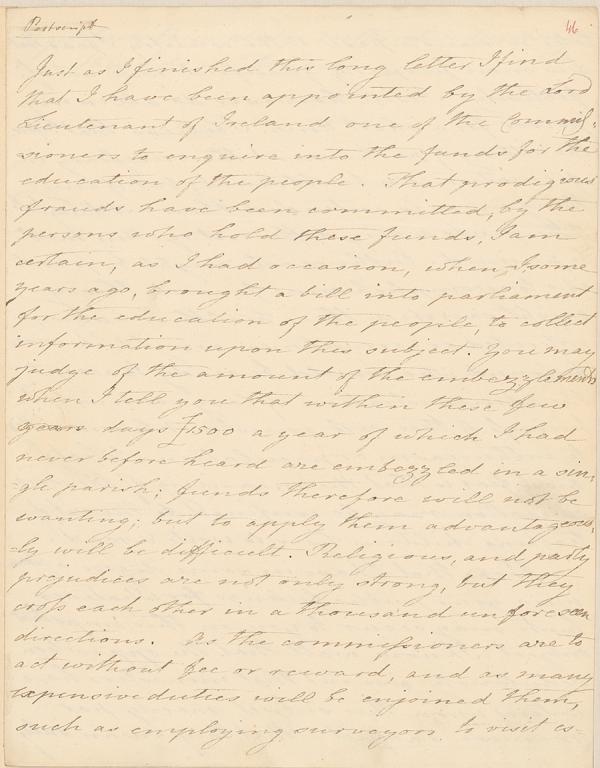 Postscript
46
Just as I finished this long letter I find
that I have been appointed by the Lord
Lieutenant of Ireland one of the Commis-
sioners to enquire into the funds for the
education of the people. That prodigeous
frauds have been committed, by the
persons who hold these funds, I am
certain, as I had occasion, when, I some
years ago, brought a bill into parliament
for the education of the people, to collect
information upon this subject. You may
judge of the amount of the embezzlements
when I tell you that within these few
years days £1500 a year of which I had
never before heard are embezzled in a sin-
gle parish; funds therefore will not be
wanting; but to apply them advantageous-
=ly will be difficult. Religious, and party
prejudices are not only strong, but they
cross each other in a thousand unforeseen
directions. As the commissioners are to
act without fee or reward, and as many
expensive duties will be enjoined them,
such as employing surveyors to visit es=